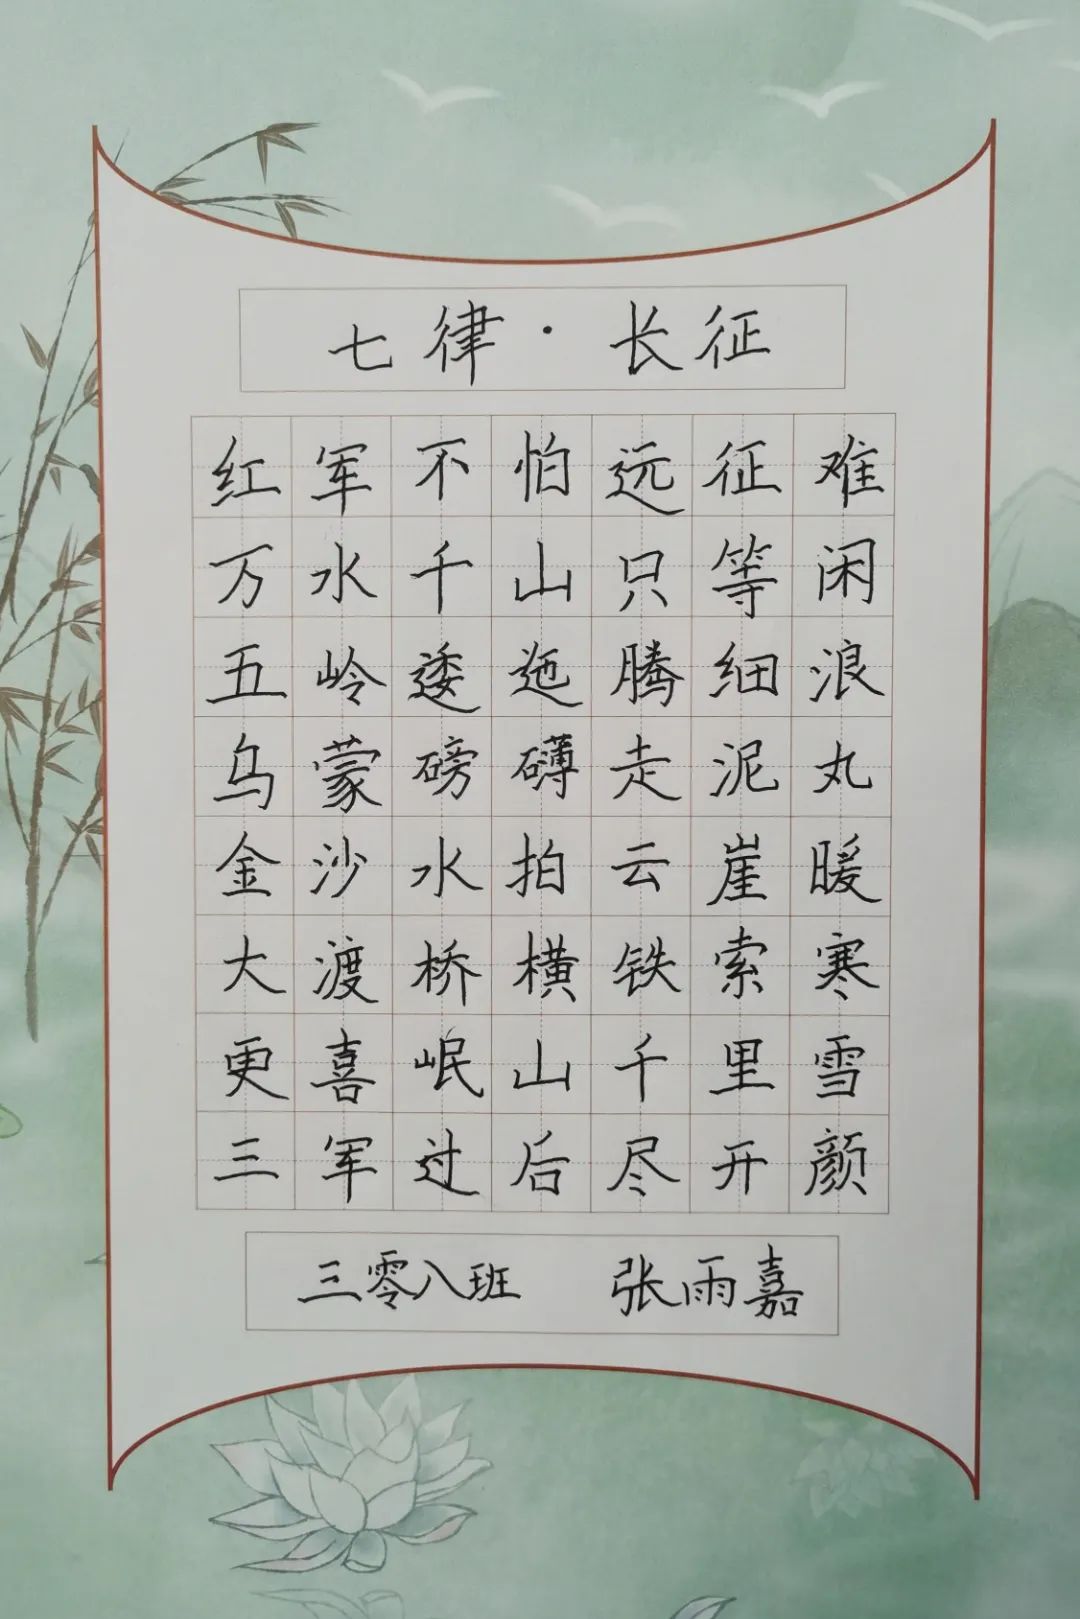 七律·长征
红军不怕远征难
万水千山只等闲
五岭逶迤腾细浪
乌蒙磅礴走泥丸
金沙水拍云崖暖
大渡桥横铁索寒
更喜岷山千里雪
三军过后尽开颜
三零八班 张雨嘉